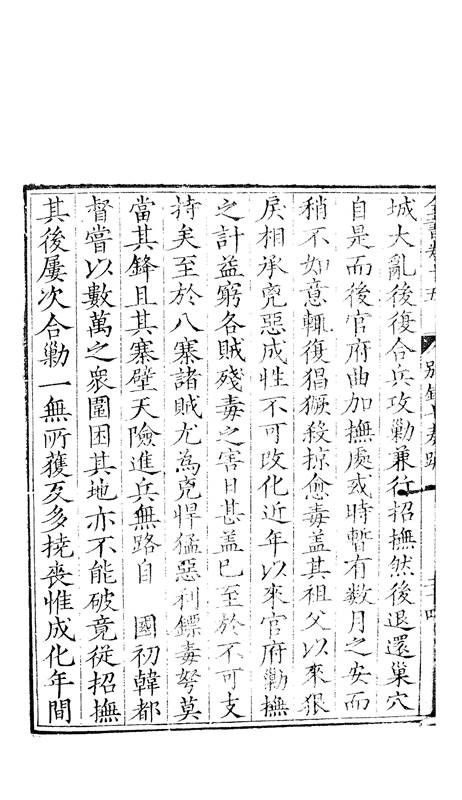 全書卷十五 別錄 奏疏
城大亂後復合兵攻勦兼行招撫然後退還巢穴
自是而後官府曲加撫處或時暫有數月之安而
稍不如意輒復猖獗殺掠愈毒盖其祖父以來狠
戾相承兇惡成性不可改化近年以來官府勦撫
之計益窮各賊殘毒之害日甚盖已至於不可支
持矣至於八寨諸賊尤為兇悍猛惡利鏢毒弩莫
當其鋒且其寨壁天險進兵無路自 國初韓都
督嘗以數萬之衆圍困其地亦不能破竟從招撫
其後屢次合勦一無所獲反多撓喪惟成化年間